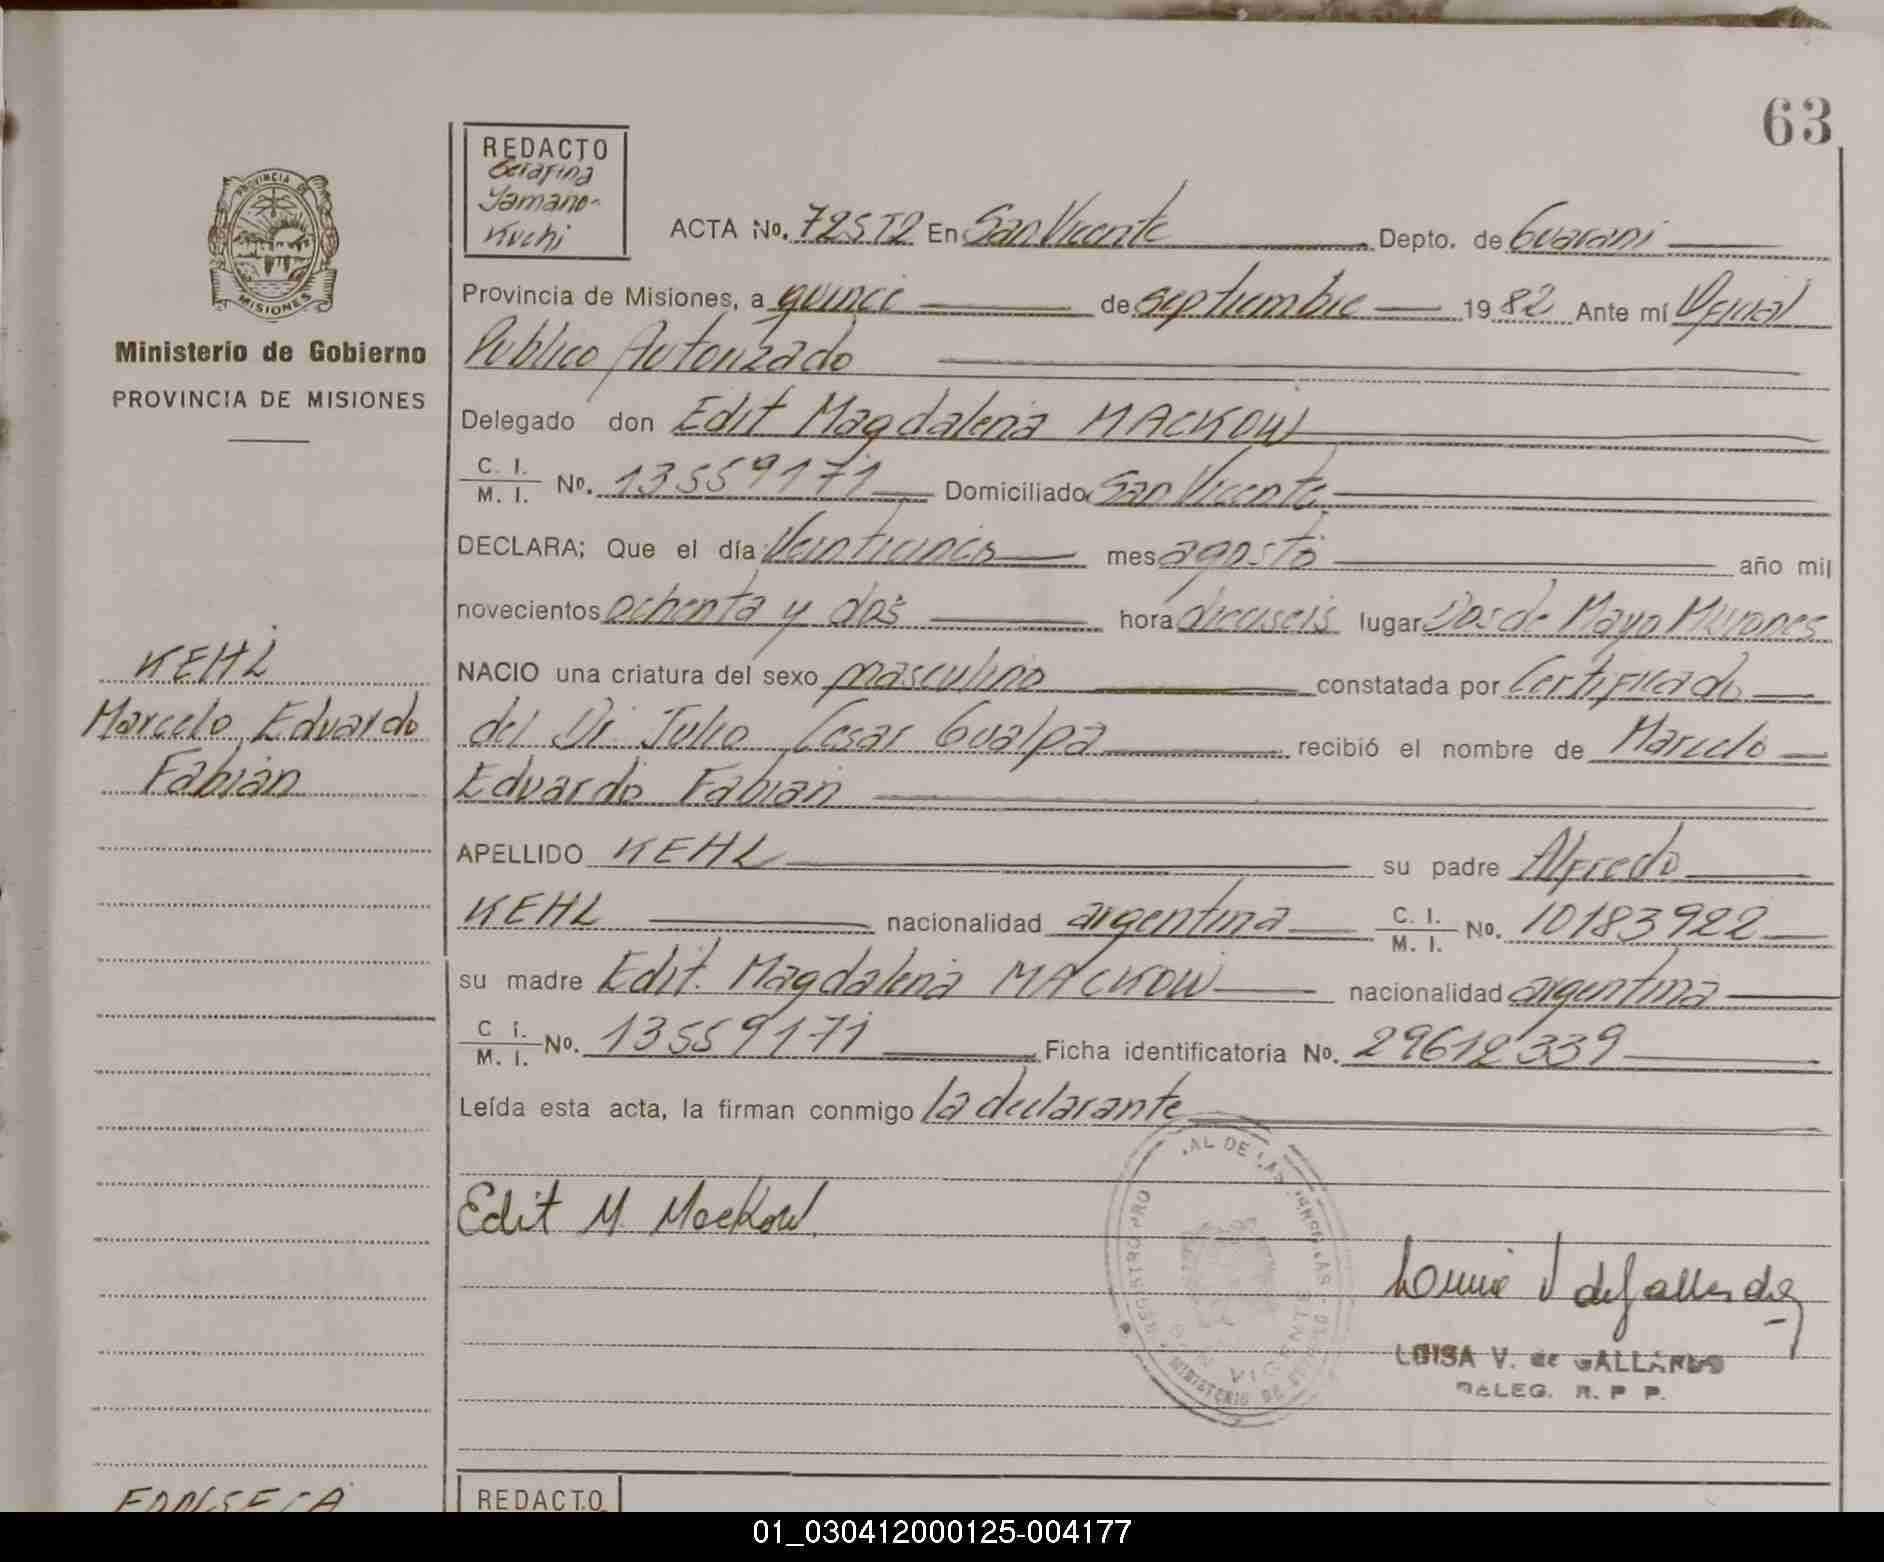 63
REDACTO
Serafina
Yamano-
Kuchi
PROVINCIA DE
MISIONES
ACTA No. 725T2 En San Vicente Depto. de Guarani
Provincia de Misiones, a quince de septiembre 1982 Ante mí Oficial
Ministerio de Gobierno
Publico Autorizado
PROVINCIA DE MISIONES
Delegado don Edit Magdalena MACKOW
C. I.
M. I. No. 13559171 Domiciliado San Vicente
DECLARA; Que el día Veinticinco mes agosto año mil
novecientos ochenta y dos hora dieciseis lugar Dos de Mayo Misiones
KEHL
NACIO una criatura del sexo masculino constatada por Certificado
Marcelo Eduardo
del Dr. Julio Cesar Gualpa recibió el nombre de Marcelo
Fabian
Eduardo Fabian
APELLIDO KEHL su padre Alfredo
KEHL nacionalidad argentina C. I. M. I. No. 10183922
su madre Edit Magdalena MACKOW nacionalidad argentina
C. I. M. I. No. 13559171 Ficha identificatoria No. 29612339
Leída esta acta, la firman conmigo la declarante
Edit M. Mackow
SAN VICENTE
MINISTERIO DE
LUISA V. de GALLARDO
DELEG. R. P. P.
FONSECA
REDACTO
01_030412000125-004177